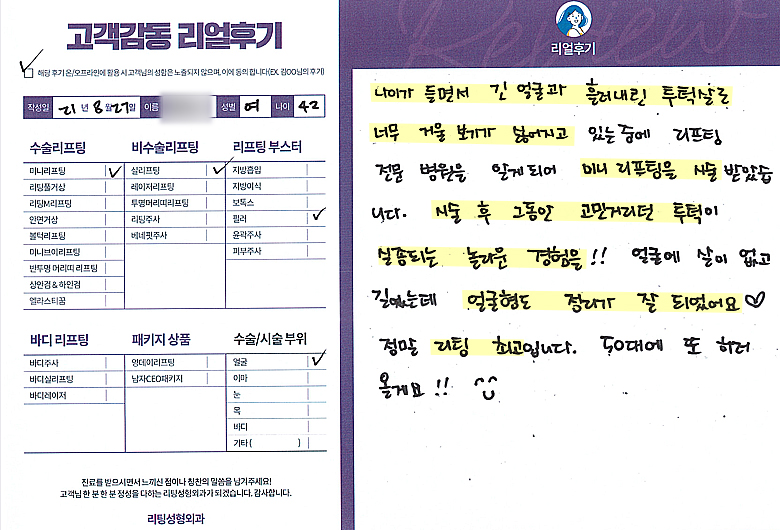 고객감동 리얼후기
해당 후기 온/오프라인에 활용 시 고객님의 성함은 노출되지 않으며, 이에 동의 합니다(EX. 김OO님의 후기)
작성일 21년 8월 27일 이름 성별 여 나이 42
수술리프팅
미니리프팅
리팅풀거상
리팅M리프팅
안면거상
볼턱리프팅
미니브이리프팅
반투명 머리띠 리프팅
상안검 & 하안검
엘라스티꿈
비수술리프팅
실리프팅
레이저리프팅
투명머리띠리프팅
리팅주사
베네핏주사
리프팅 부스터
지방흡입
지방이식
보톡스
필러
윤곽주사
피부주사
바디 리프팅
바디주사
바디실리프팅
바디레이저
패키지 상품
원데이리프팅
남자CEO패키지
수술/시술 부위
얼굴
이마
눈
목
바디
기타 ( )
진료를 받으시면서 느끼신 점이나 칭찬의 말씀을 남겨주세요!
고객님 한 분 한 분 정성을 다하는 리팅성형외과가 되겠습니다. 감사합니다.
리팅성형외과
Review
리얼후기
나이가 들면서 긴 얼굴과 흘러내린 투턱살로
너무 거울 보기가 싫어지고 있는중에 리프팅
전문 병원을 알게되어 미니 리프팅을 시술 받았습
니다. 시술 후 그동안 고민거리던 투턱이
실종되는 놀라운 경험을!! 얼굴에 살이 없고
길었는데 얼굴형도 정리가 잘 되었어요♡
정말 리팅 최고입니다. 50대에 또 하러
올게요!! ^^